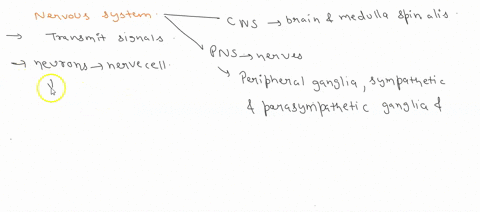 Nervous system.
→ Transmit signals.
→ neurons → nerve cell.
CNS → brain & medulla spinalis.
PNS → nerves
↳ Peripheral ganglia, sympathetic
& parasympathetic ganglia &